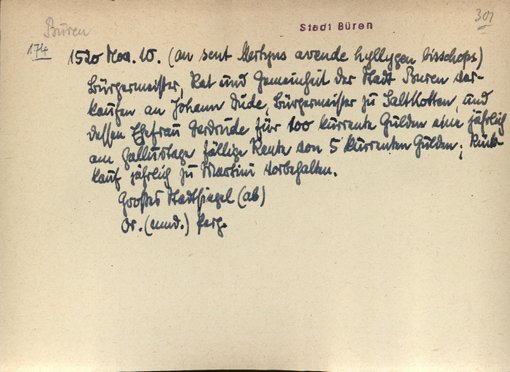 Büren
Stadt Büren
301
174
1520 Nov. 10. (an sent Mertyns avende hyllygen bisschops)
Bürgermeister, Rat und Gemeinheit der Stadt Buren ver-
kaufen an Johann Dude, Bürgermeister zu Saltkotten, und
dessen Ehefrau Gertrude für 100 kurrente Gulden eine jährlich
am Gallustage fällige Rente von 5 kurrenten Gulden; Rück-
kauf jährlich zu Martini vorbehalten.
Großes Stadtsiegel (ab)
Or. (mnd.) Perg.